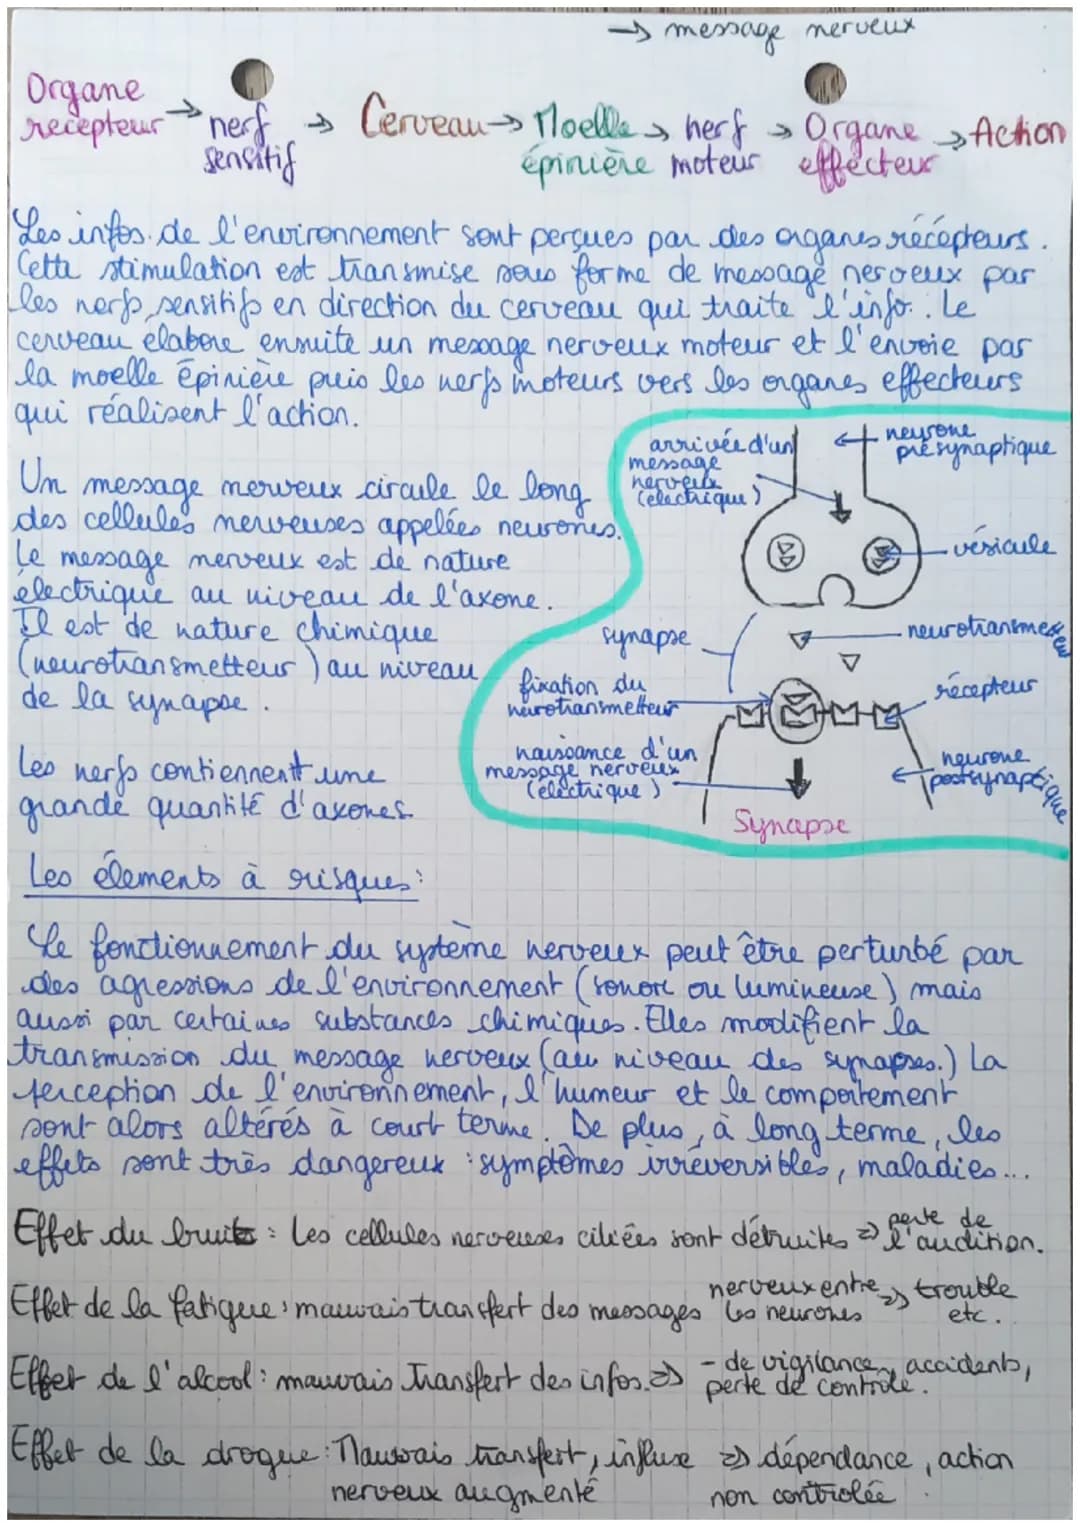 → message nerveux
Organe recepteur → nerf sensitif → Cerveau → Moelle épinière → nerf moteur → Organe effecteur → Action
Les infos. de l'environnement sont perçues par des organes récépteurs.
Cette stimulation est transmise sous forme de message nerveux par
les nerfs sensitifs en direction du cerveau qui traite l'info. Le
cerveau élabore ensuite un message nerveux moteur et l'envoie par
la moelle épinière puis les nerfs moteurs vers les organes effecteurs
qui réalisent l'action.
Un message nerveux circule le long
des cellules nerveuses appelées neurones.
Le message nerveux est de nature
électrique au niveau de l'axone.
Il est de nature chimique
(neurotransmetteur) au niveau
de la synapse.
Les nerfs contiennent une
grande quantité d'axones.
arrivée d'un
message
nerveux
(électrique)
neurone
présynaptique
vésicule
synapse
neurotransmetteur
fixation du
neurotransmetteur
récepteur
naissance d'un
message nerveux
(électrique)
neurone
postsynaptique
Synapse
Les élements à risques:
Le fonctionnement du système nerveux peut être perturbé par
des agressions de l'environnement (sonore ou lumineuse) mais
aussi par certaines substances chimiques. Elles modifient la
transmission du message nerveux (au niveau des synapses.) La
perception de l'environnement, l'humeur et le comportement
sont alors altérés à court terme. De plus, à long terme, les
effets sont très dangereux : symptômes irréversibles, maladies...
Effet du bruit : Les cellules nerveuses ciliées sont détruites ⇒ perte de l'audition.
Effet de la fatigue : mauvais transfert des messages nerveux entre les neurones ⇒ trouble etc.
Effet de l'alcool : mauvais transfert des infos. ⇒ - de vigilance, accidents, perte de contrôle.
Effet de la drogue : Mauvais transfert, influx nerveux augmenté ⇒ dépendance, action non contrôlée.